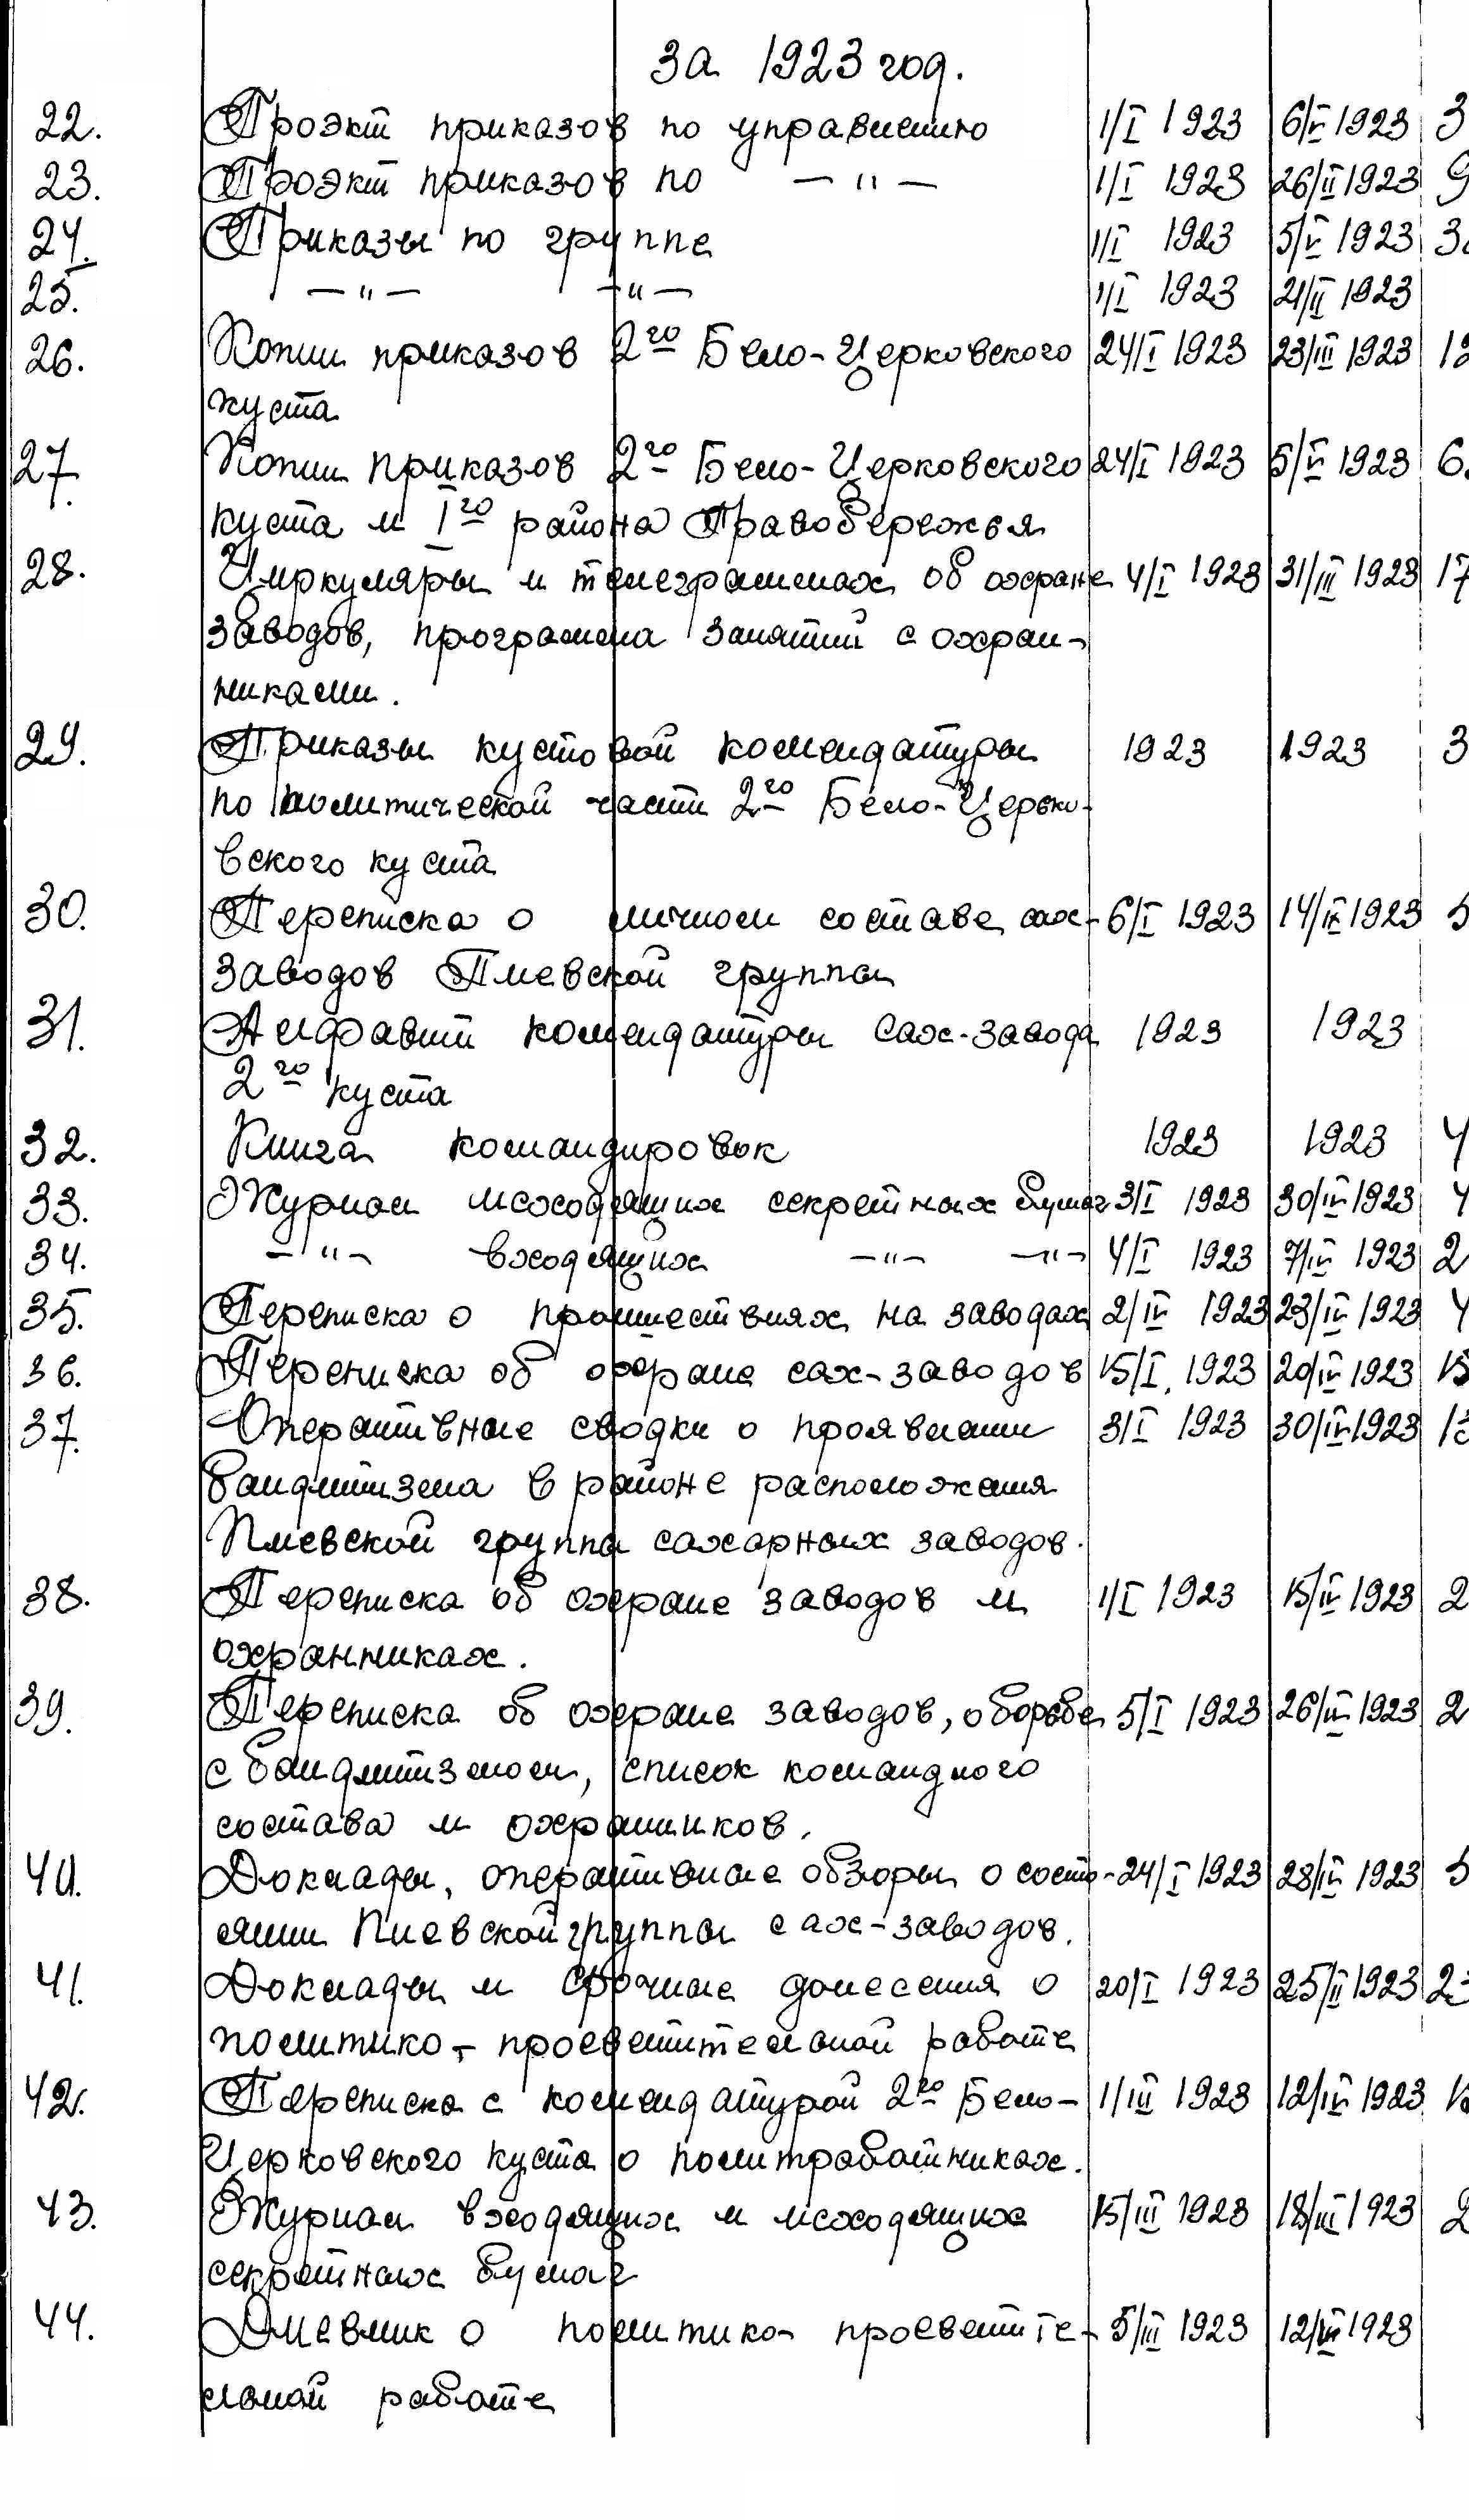 за 1923 год.
22. Проэкт приказов по управлению 1/I 1923 6/V 1923 3
23. Проэкт приказов по —"— 1/I 1923 26/II 1923 9
24. Приказы по группе 1/I 1923 5/V 1923 3
25. —"— —"— 1/I 1923 21/II 1923
26. Копии приказов 2го Бело-Церковского 24/I 1923 23/III 1923 12
куста
27. Копии приказов 2го Бело-Церковского 24/I 1923 5/V 1923 6
куста и Iго района Правобережья
28. Циркуляры и телеграммах об охране 4/I 1923 31/III 1923 17
заводов, программа занятий с охран-
никами.
29. Приказы кустовой комендатуры 1923 1923 3
по политической части 2го Бело-Церко-
вского куста
30. Переписка о личном составе сах- 6/I 1923 14/IV 1923 5
заводов Киевской группы
31. Алфавит комендатуры сах-завода 1923 1923
2го куста
32. Книга командировок 1923 1923 4
33. Журнал исходящих секретных бумаг 3/I 1923 30/IV 1923 4
34. —"— входящих —"— —"— 4/I 1923 7/IV 1923 2
35. Переписка о проишествиях на заводах 2/IV 1923 23/IV 1923 4
36. Переписка об охране сах-заводов 15/I 1923 20/IV 1923 15
37. Оперативные сводки о проявлении 3/I 1923 30/IV 1923 13
бандитизма в районе расположения
Киевской группы сахарных заводов.
38. Переписка об охране заводов и 1/I 1923 15/IV 1923 2
охранниках.
39. Переписка об охране заводов, о борьбе 5/I 1923 26/IV 1923 2
с бандитизмом, список командного
состава и охранников.
40. Доклады, оперативные обзоры о состо- 24/I 1923 28/IV 1923 5
янии Киевской группы сах-заводов.
41. Доклады и срочные донесения о 20/I 1923 25/II 1923 23
политико-просветительной работе
42. Переписка с комендатурой 2го Бело- 1/III 1923 12/IV 1923
Церковского куста о политработниках.
43. Журнал входящих и исходящих 15/III 1923 18/III 1923 2
секретных бумаг
44. Дневник о политико-просветите- 5/III 1923 1923
льной работе